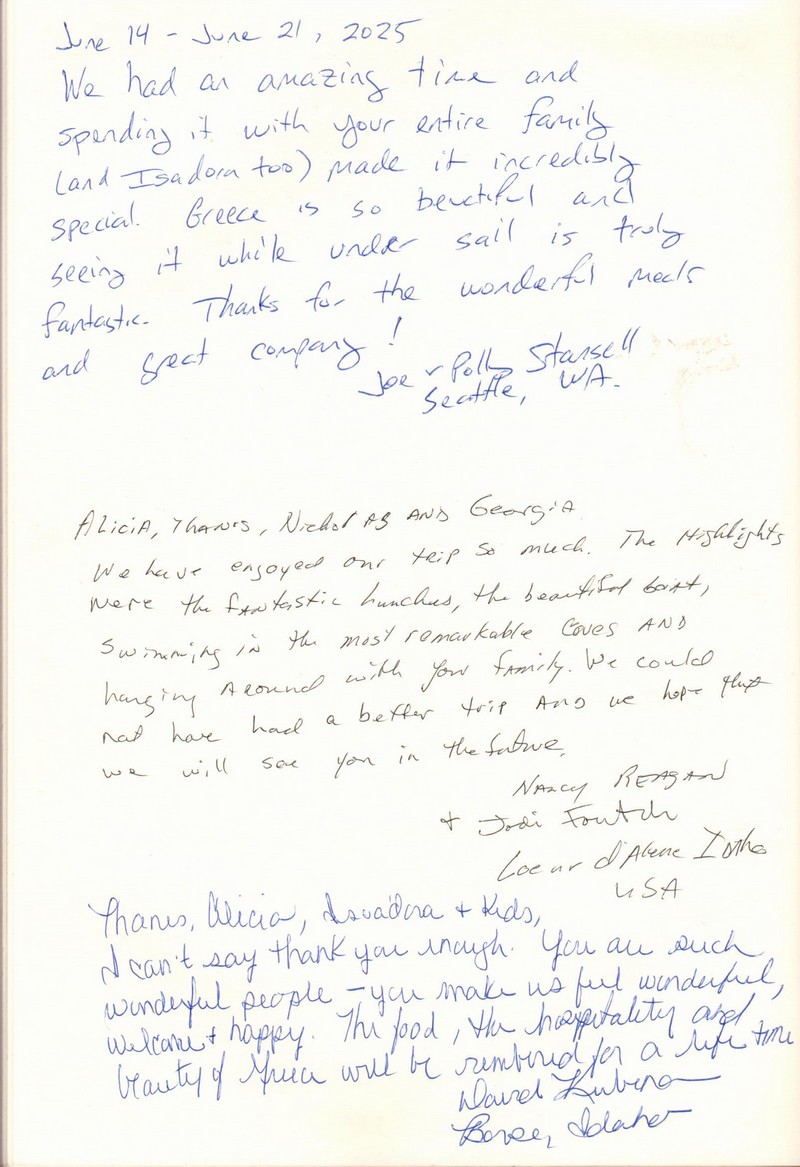 June 14 - June 21, 2025
We had an amazing time and
spending it with your entire family
(and Isadora too) made it incredibly
special. Greece is so beautiful and
seeing it while under sail is truly
fantastic. Thanks for the wonderful meals
and great company!
Joe + Polly Stansell
Seattle, WA.
Alicia, Thanos, Nicholas AND Georgia
We have enjoyed our trip so much. The Highlights
were the fantastic lunches, the beautiful boat,
swimming in the most remarkable coves AND
hanging Around with your family. We could
not have had a better trip AND we hope that
we will see you in the future.
Nancy REAGAN
+ Jodi
Coeur d'Alene Idaho
USA
Thanos, Alicia, Isadora + Kids,
I can't say thank you enough. You are such
wonderful people - you make us feel wonderful,
welcome + happy. The food, the hospitality and
beauty of Greece will be remembered for a life time
David
Boise, Idaho